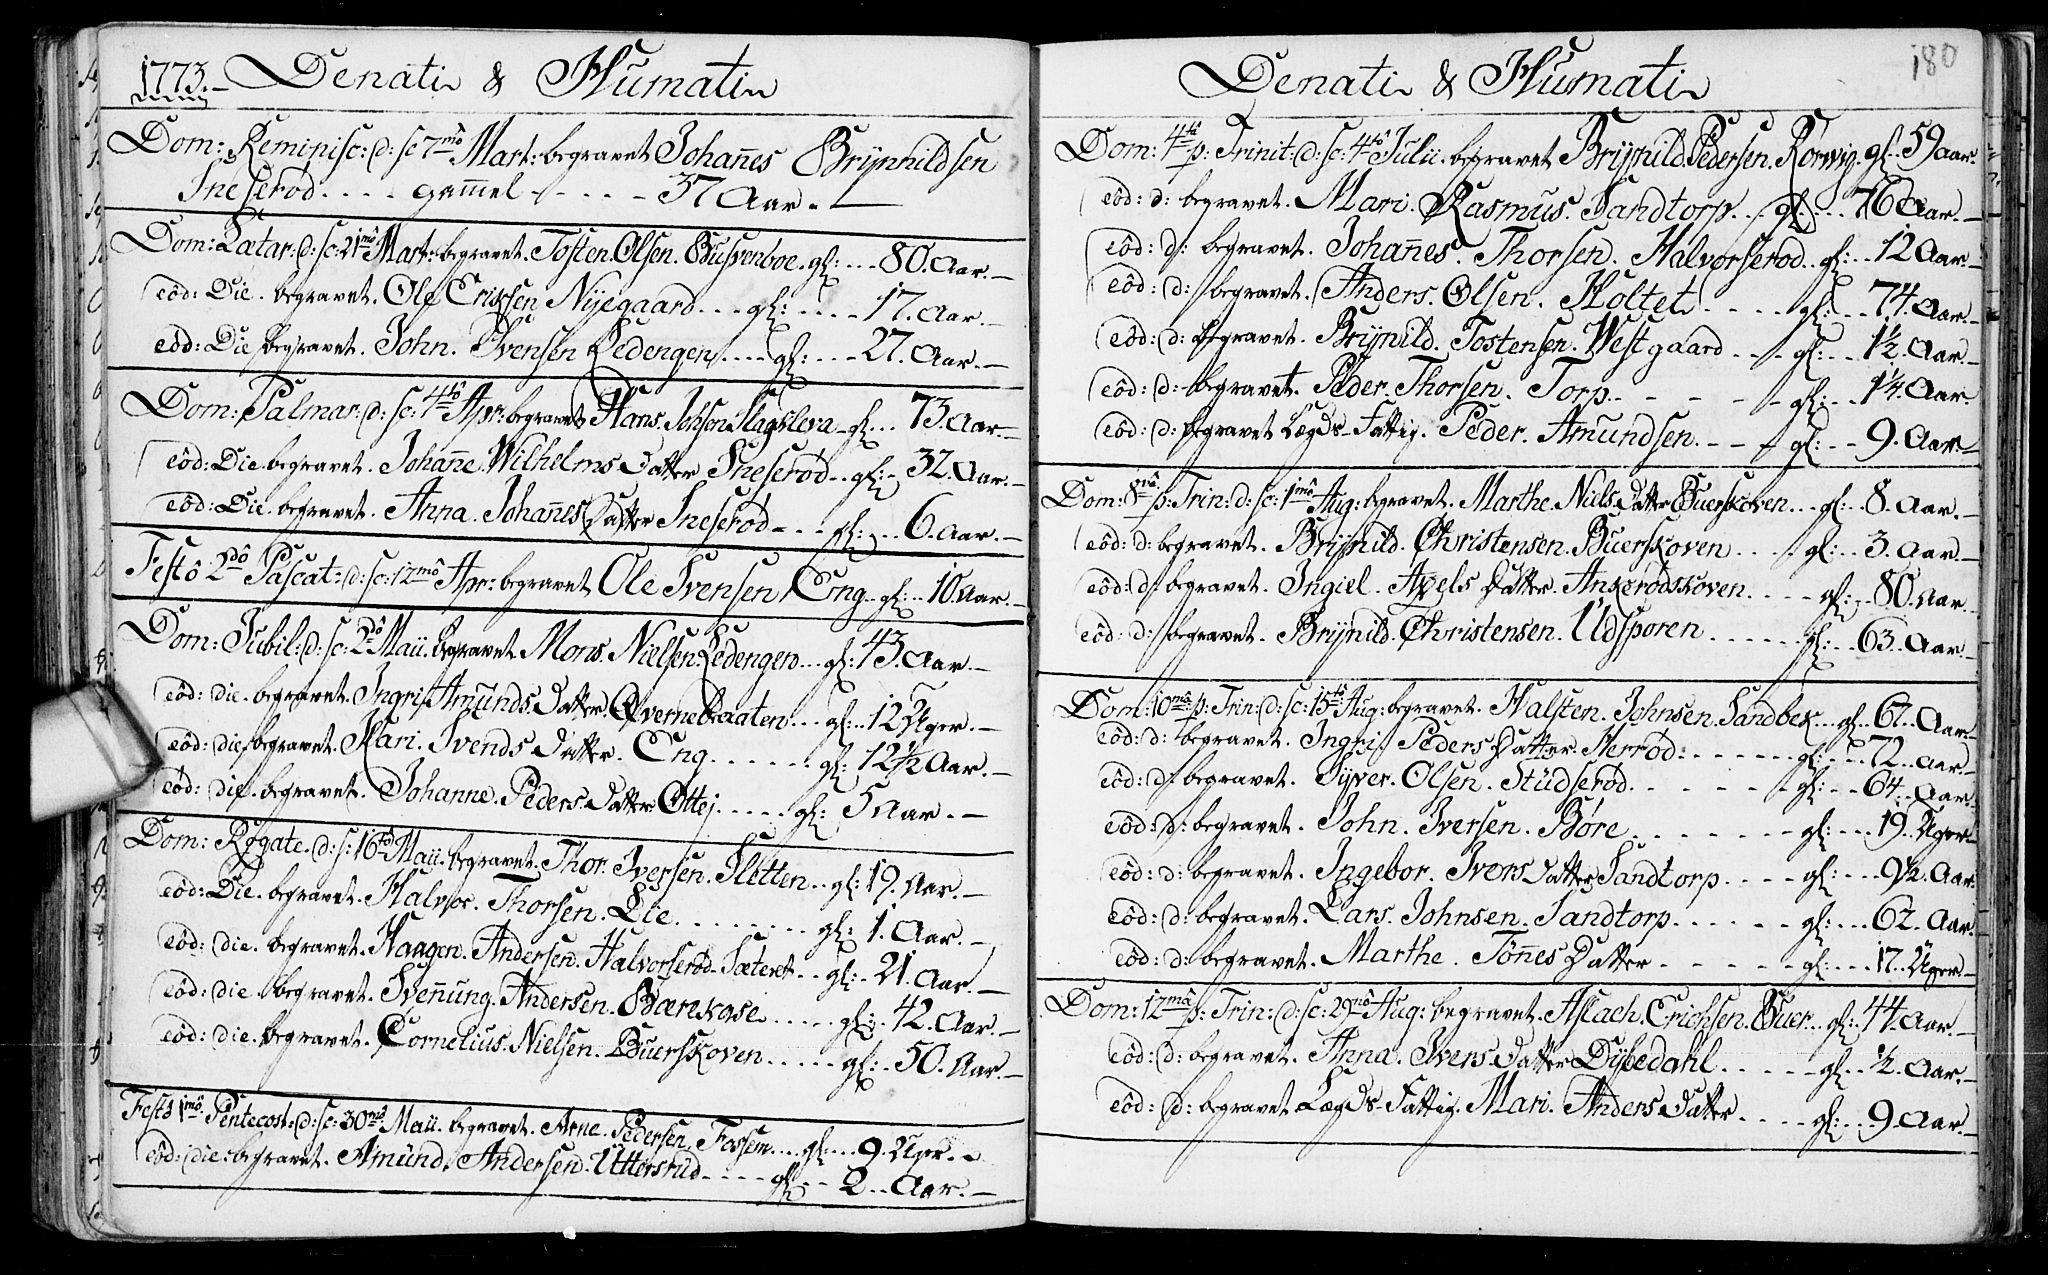 1773. Denati & Humati
Dom: Reminisc: d: sc: 7mô Mart: begravet Johan̄es Brÿnhildsen
Ineserød.... gammel - - - - 37 Aar.
Dom: Lætar: d: sc: 21mô Mart: begravet. Tosten. Olsen. Gusvenboe. gl: ... 80. Aar.
eôd: Die. begravet. Ole Erichsen Nÿegaard ... gl: .... 17. Aar.
eôd: Die begravet. John. Svensen Ledengen .... gl: ... 27. Aar.
Dom: Palmar: d: sc: 4tô Apr: begravet Hans. Johsen Slagsleva - gl: ... 73 Aar.
eôd: Die. begravet. Johan̄e Wilhelms Datter Ineserød.. gl: .. 32. Aar.
eôd: Die begravet. Anna. Johan̄es Datter Ineserød - .. gl: .. 6. Aar.
Festô 2dô Pascat: d: sc: 12mô Apr: begravet Ole Svensen Eng. gl: .. 10 Aar.
Dom: Jubil: d: sc: 2dô Maii. begravet Mons. Nielsen. Ledengen ... gl: 43. Aar.
eôd: die. begravet. Ingri Amunds. Datter. Qvernebraaten ... gl: .. 12 Uger.
eôd: die. begravet. Kari. Svends Datter. Eng ...... gl: 12½ Aar.
eôd: die. begravet. Johanne. Peders. Datter Ottej ..... gl: 5 Aar.
Dom: Rogate. d: s: 16tô Maii. begravet. Thor. Iversen. Sletten.. gl: 19. Aar.
eôd: Die. begravet. Halvor. Thorsen. Lie ........ gl: 1. Aar.
eôd: die. begravet. Haagen. Andersen. Halvorserød-Sæteret.. gl: . 21. Aar.
eôd: die. begravet. Sven̄ung. Andersen. Bærkase ..... gl: . 42. Aar.
eôd: die. begravet. Cornelius. Nielsen. Buerskoven ..... gl: . 50. Aar.
Festô 1mô Pentecost: d: sc: 30mô Maii. begravet. Arne. Pedersen. Fossem .... gl: ... 9. Uger.
eôd: die: begravet. Amund. Andersen. Uttersrud .... gl: .. 2. Aar.
180
Denati & Humati
Dom: 4tâ p: Trinit: d: sc: 4tô Julii. begravet Brÿnild. Pedersen. Rørvig. gl: . 59 Aar.
eôd: d: begravet. Mari. Rasmus. Sandtorp ... gl: ... 76 Aar.
eôd: d: begravet. Johan̄es. Thorsen. Halvorserød.. gl: .. 12 Aar.
eôd: d: begravet. Anders. Olsen. Holtet ..... gl: ... 74. Aar.
eôd: d: begravet. Brÿnild. Tostensen. Westgaard ... gl: ... 1½. Aar.
eôd: d: begravet. Peder. Thorsen. Torp ..... gl: ... 14. Aar.
eôd: d: begravet Lægds-Fattig. Peder. Amundsen. - - - gl: .. 9. Aar.
Dom: 8vâ p: Trin: d: sc: 1mô Aug: begravet. Marthe. Niels. Datter Buerskoven ... gl: .. 8. Aar.
eôd: d: begravet. Brÿnild. Christensen. Buerskoven ..... gl: ... 3. Aar.
eôd: d: begravet. Ingiel. Axels Datter. Ankerødskoven ..... gl: .. 80. Aar.
eôd: d: begravet. Brÿnild. Christensen. Udsporen ...... gl: ... 63. Aar.
Dom: 10mâ p: Trin: d: sc: 15tô Aug: begravet. Halsten. Johnsen. Sandbek ... gl: 67.. Aar.
eôd: d: begravet. Ingri. Peders Datter. Herrød: ....... gl: ... 72.. Aar.
eôd: d: begravet. Syver. Olsen. Studserød ....... gl: ... 64.. Aar.
eôd: d: begravet. John. Iversen. Børe ........ gl: ... 19. Uger.
eôd: d: begravet. Ingebor. Ivers Datter Sandtorp .... gl: ... 9½. Aar.
eôd: d: begravet. Lars. Johnsen. Sandtorp ...... gl: ... 62. Aar.
eôd: d: begravet. Marthe. Tön̄es Datter ..... gl: ... 17.. Uger.
Dom: 12mâ p: Trin: d: sc: 29mô Aug: begravet. Aslach. Erichsen. Buer ... gl: . 44. Aar.
eôd: d: begravet. Anna. Ivers Datter Dÿbedahl ...... gl: .. ½. Aar.
eôd: d: begravet Lægds-Fattig. Mari. Anders Datter .... gl: ... 9. Aar.